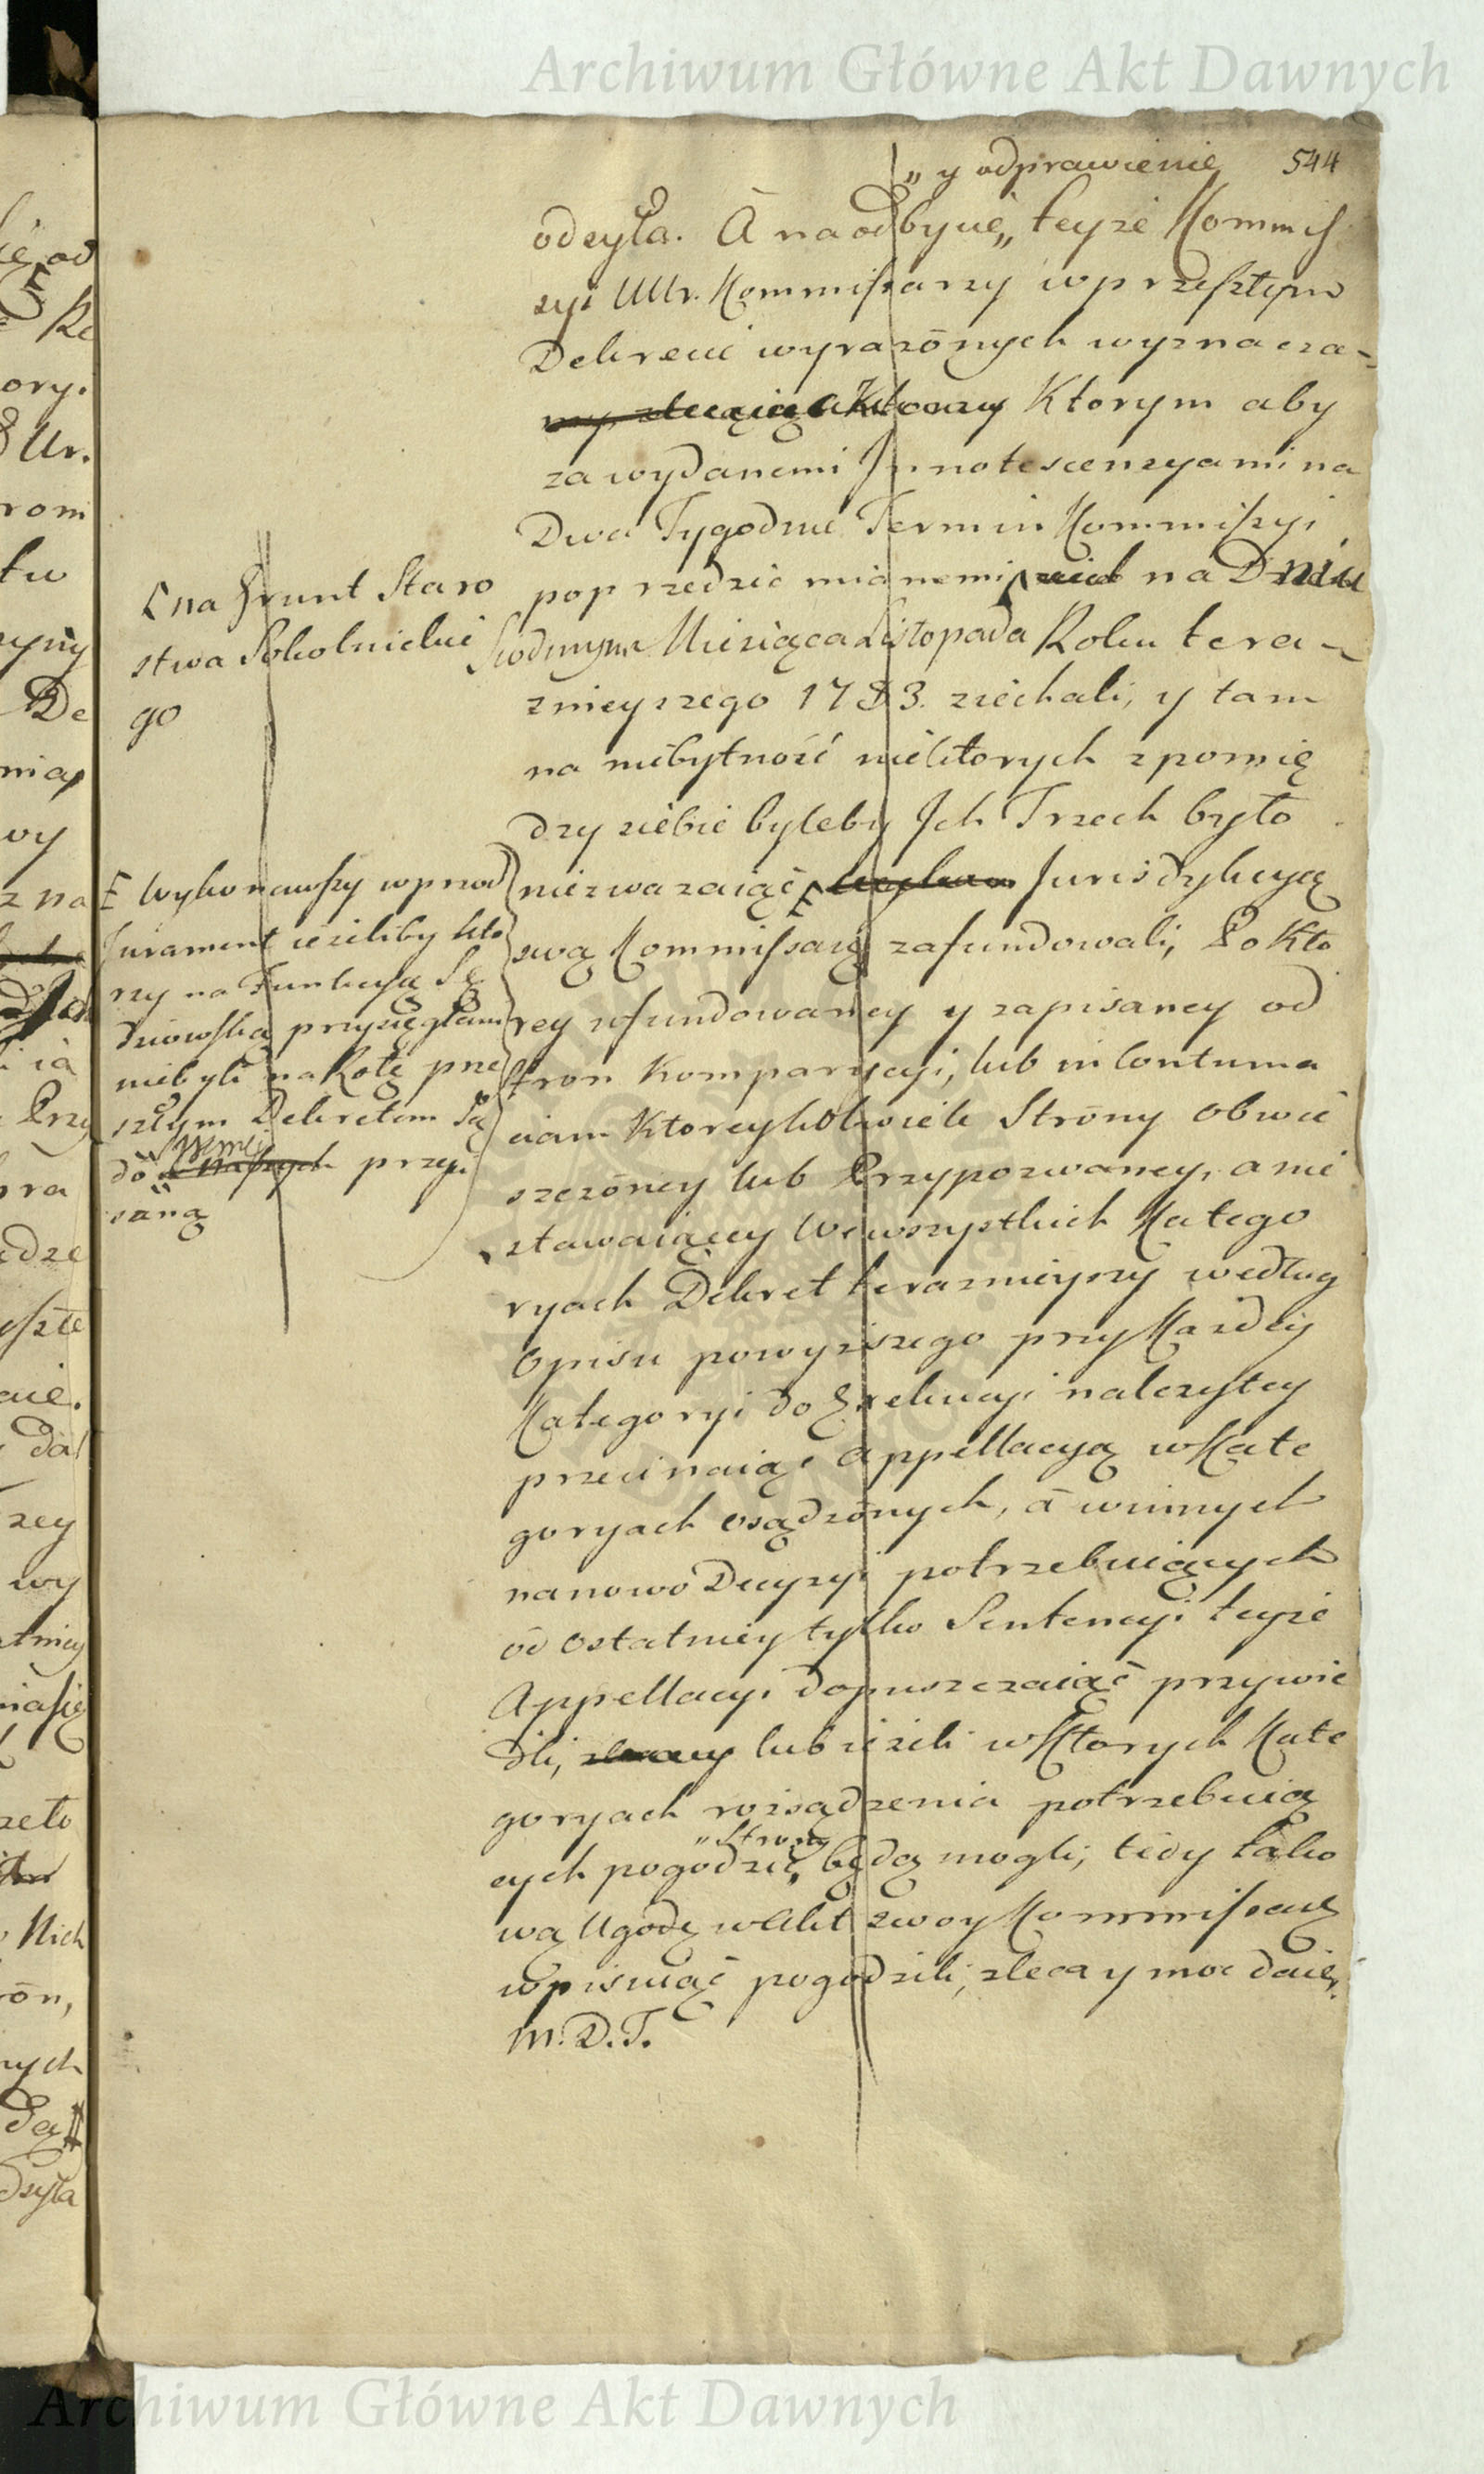 Archiwum Główne Akt Dawnych
„ y odprawienie
544
odsyła. A na odbycie„ teyże Kommis
syi UUr. Kommissarzy w przeszłym
Dekrecie wyrażonych wyznacza-
my Ktorym aby
za wydanemi Innotescencyami na
Dwa Tygodnie Termin Kommissyi
poprzedzić mianemi na Dniu
Siodmym Miesiąca Listopada Roku tera-
znieyszego 1783. ziechali, y tam
na niebytność niektorych z pomię
dzy siebie byleby Ich Trzech było
niezważaiąc Jurisdykcyą
swą Kommissarską zafundowali, Po Kto
rey ufundowaney y zapisaney od
stron Komparycyi, lub in Contuma
ciam Ktoreykolwiek Strony obwie
szczoney lub Przypozwaney, a nie
stawaiącey we wszystkich Katego
ryach Dekret teraznieyszy według
Opisu powyższego przy Każdey
Kategoryi do Exekucyi należytey
przecinaiąc appellacyą w Kate
goryach osądzonych, a w innych
na nowo Decyzyi potrzebuiących
od ostatniey tylko Sentencyi teyże
Appellacyi dopuszczaiąc przywie
dli, lub ieżeli w Ktorych Kate
goryach rozsądzenia potrzebuią
„ Strony
cych pogodzić„ będą mogli, tedy tako
wą Ugodę w Akt swoy Kommissarski
wpisuiąc pogodzili, zleca y moc daie.
M.D.T.
na Grunt Staro
stwa Sokolnickie
go
Wykonawszy wprzod
Jurament ieżeliby kto
rzy na Funkcyą Sę
dziowską przysięgłemi
niebyli na Rotę prze
szłym Dekretem Są
dow naszych przepi
saną
Archiwum Główne Akt Dawnych